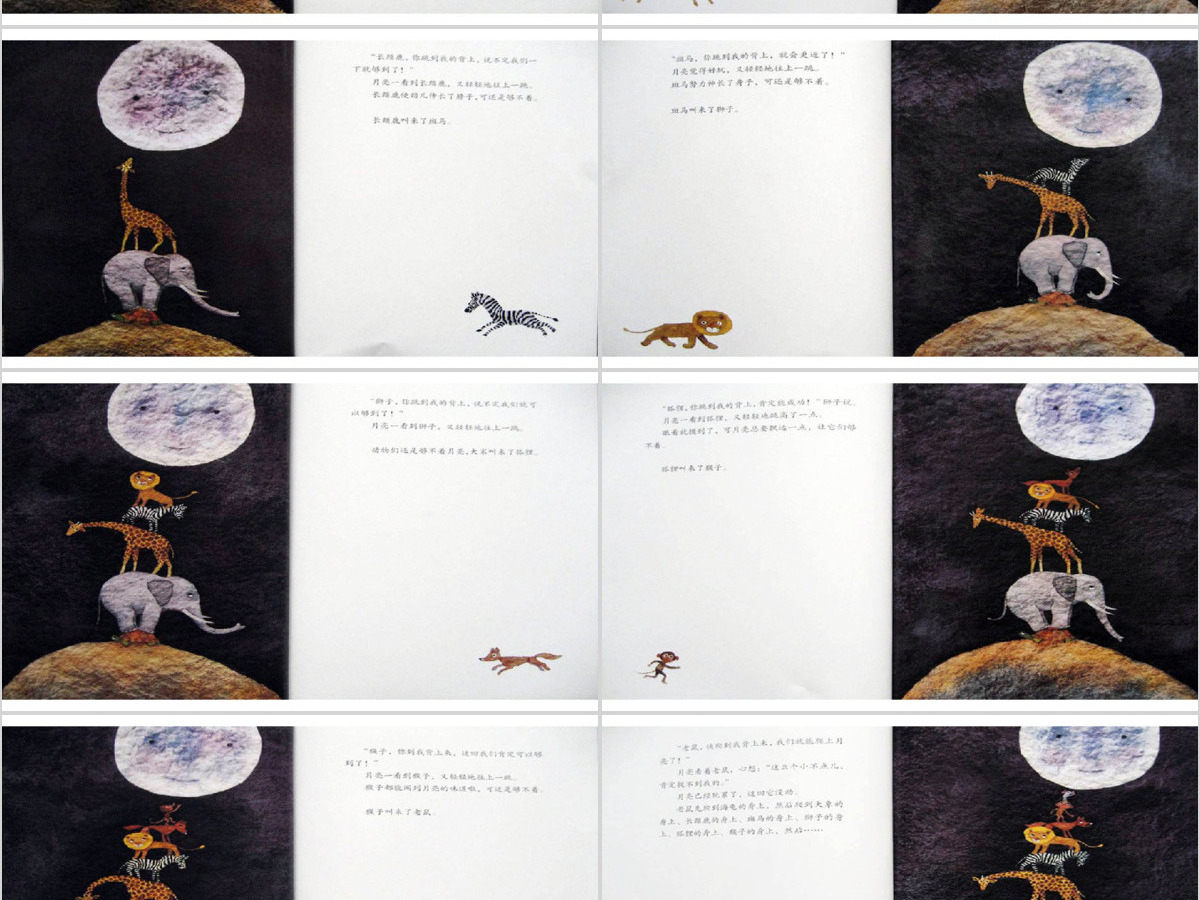 “长颈鹿，你跳到我的背上，说不定我们一
下就够到了！”
月亮一看到长颈鹿，又轻轻地往上一跳。
长颈鹿使劲儿伸长了脖子，可还是够不着。
长颈鹿叫来了斑马。
“斑马，你跳到我的背上，就会更近了！”
月亮觉得好玩，又轻轻地往上一跳。
斑马努力伸长了身子，可还是够不着。
斑马叫来了狮子。
“狮子，你跳到我的背上，说不定我们就可
以够到了！”
月亮一看到狮子，又轻轻地往上一跳。
动物们还是够不着月亮，大家叫来了狐狸。
“狐狸，你跳到我的背上，肯定能成功！”狮子说。
月亮一看到狐狸，又轻轻地跳高了一点。
眼看就摸到了，可月亮总要飘远一点，让它们够
不着。
狐狸叫来了猴子。
“猴子，你到我背上来，这回我们肯定可以够
到了！”
月亮一看到猴子，又轻轻地往上一跳。
猴子都能闻到月亮的味道啦，可还是够不着。
猴子叫来了老鼠。
“老鼠，快爬到我背上来，我们就能爬上月
亮了！”
月亮看着老鼠，心想：“这么个小不点儿，
肯定捉不到我的。”
月亮已经玩累了，这回它没动。
老鼠先爬到海龟的身上，然后爬到大象的
身上、长颈鹿的身上、斑马的身上、狮子的身
上、狐狸的身上、猴子的身上，然后……